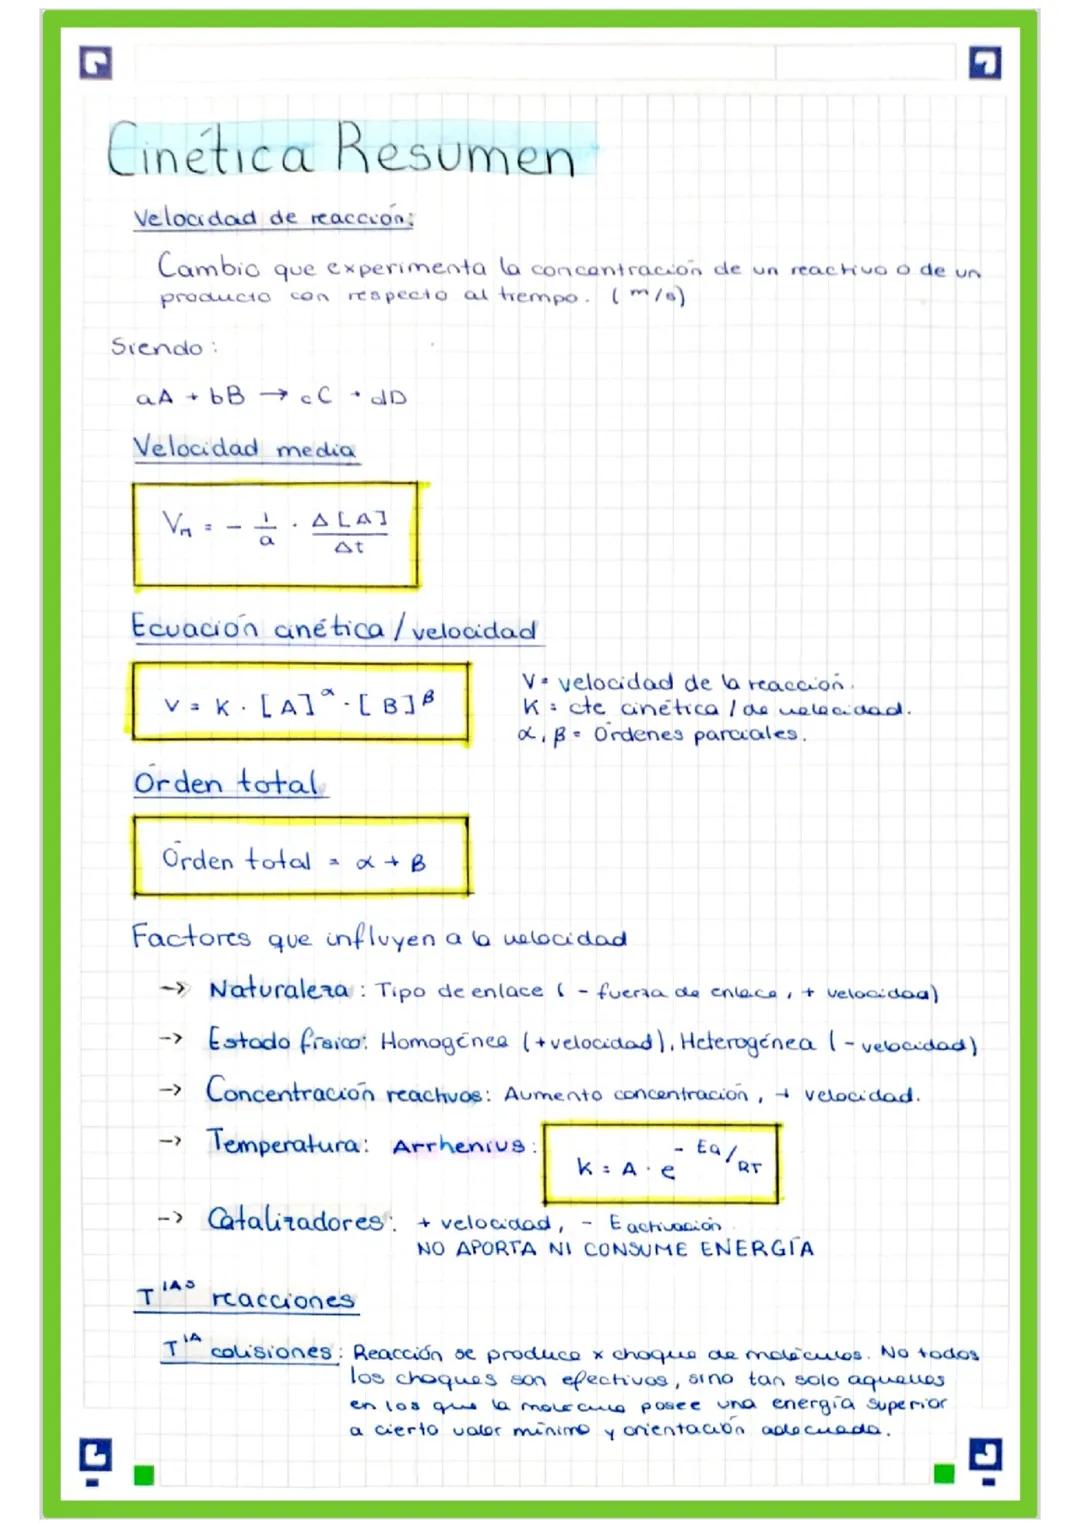 Cinética Resumen
Velocidad de reacción:
Cambio que experimenta la concentración de un reactivo o de un
producto con respecto al tiempo. (m/s)
Siendo:
aA + bB → cC + dD
Velocidad media
Vm = - 1/a · Δ[A]/Δt
Ecuación cinética / velocidad
v = K · [A]^α · [B]^β
V = velocidad de la reacción.
K = cte cinética / de velocidad.
α, β = Órdenes parciales.
Orden total
Orden total = α + β
Factores que influyen a la velocidad
-> Naturaleza: Tipo de enlace (- fuerza de enlace, + velocidad)
-> Estado físico: Homogénea (+velocidad), Heterogénea (-velocidad)
-> Concentración reactivos: Aumento concentración, + velocidad.
-> Temperatura: Arrhenius: K = A · e^(-Ea/RT)
-> Catalizadores: + velocidad, - E activación.
NO APORTA NI CONSUME ENERGÍA
T^IAS reacciones
T^IA colisiones: Reacción se produce x choque de moléculas. No todos
los choques son efectivos, sino tan solo aquellos
en los que la molécula posee una energía superior
a cierto valor mínimo y orientación adecuada.